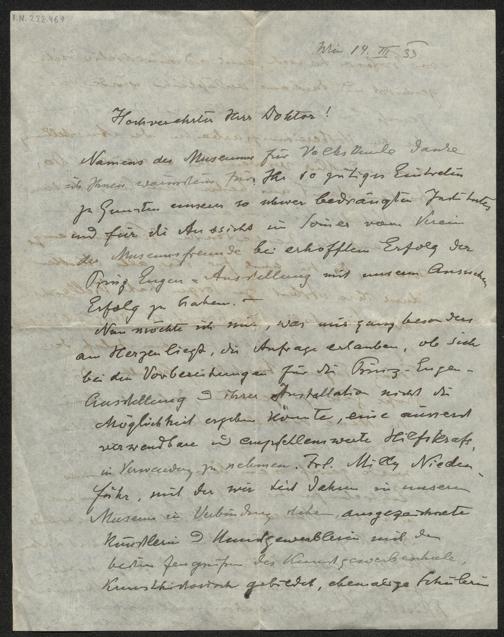 I.N. 228.469
Wien 19. III 33
Hochverehrter Herr Doktor!
Namens des Museums für Volkskunde danke
ich Ihnen wärmstens für Ihr so gütiges Eintreten
zu Gunsten unseres so schwer bedrängten Institutes
und für die Aussicht in seiner vom Verein
der Museumsfreunde bei erhofften Erfolg der
Prinz Eugen-Ausstellung mit unserm Ansuchen
Erfolg zu haben. –
Nun möchte ich mir, was mir ganz besonders
am Herzen liegt, die Anfrage erlauben, ob sich
bei den Vorbereitungen für die Prinz-Eugen-
Ausstellung u ihrer Installation nicht die
Möglichkeit ergeben könnte, eine äusserst
verwendbare u empfehlenswerte Hilfskraft
in Verwendung zu nehmen. Frl. Milly Nieden-
führ, mit der wir seit Jahren in unserem
Museum in Verbindung stehen, ausgezeichnete
Künstlerin u Kunstgewerblerin mit den
besten Zeugnissen der Kunstgewerbeschule
kunsthistorisch gebildet, ehemalige Schülerin